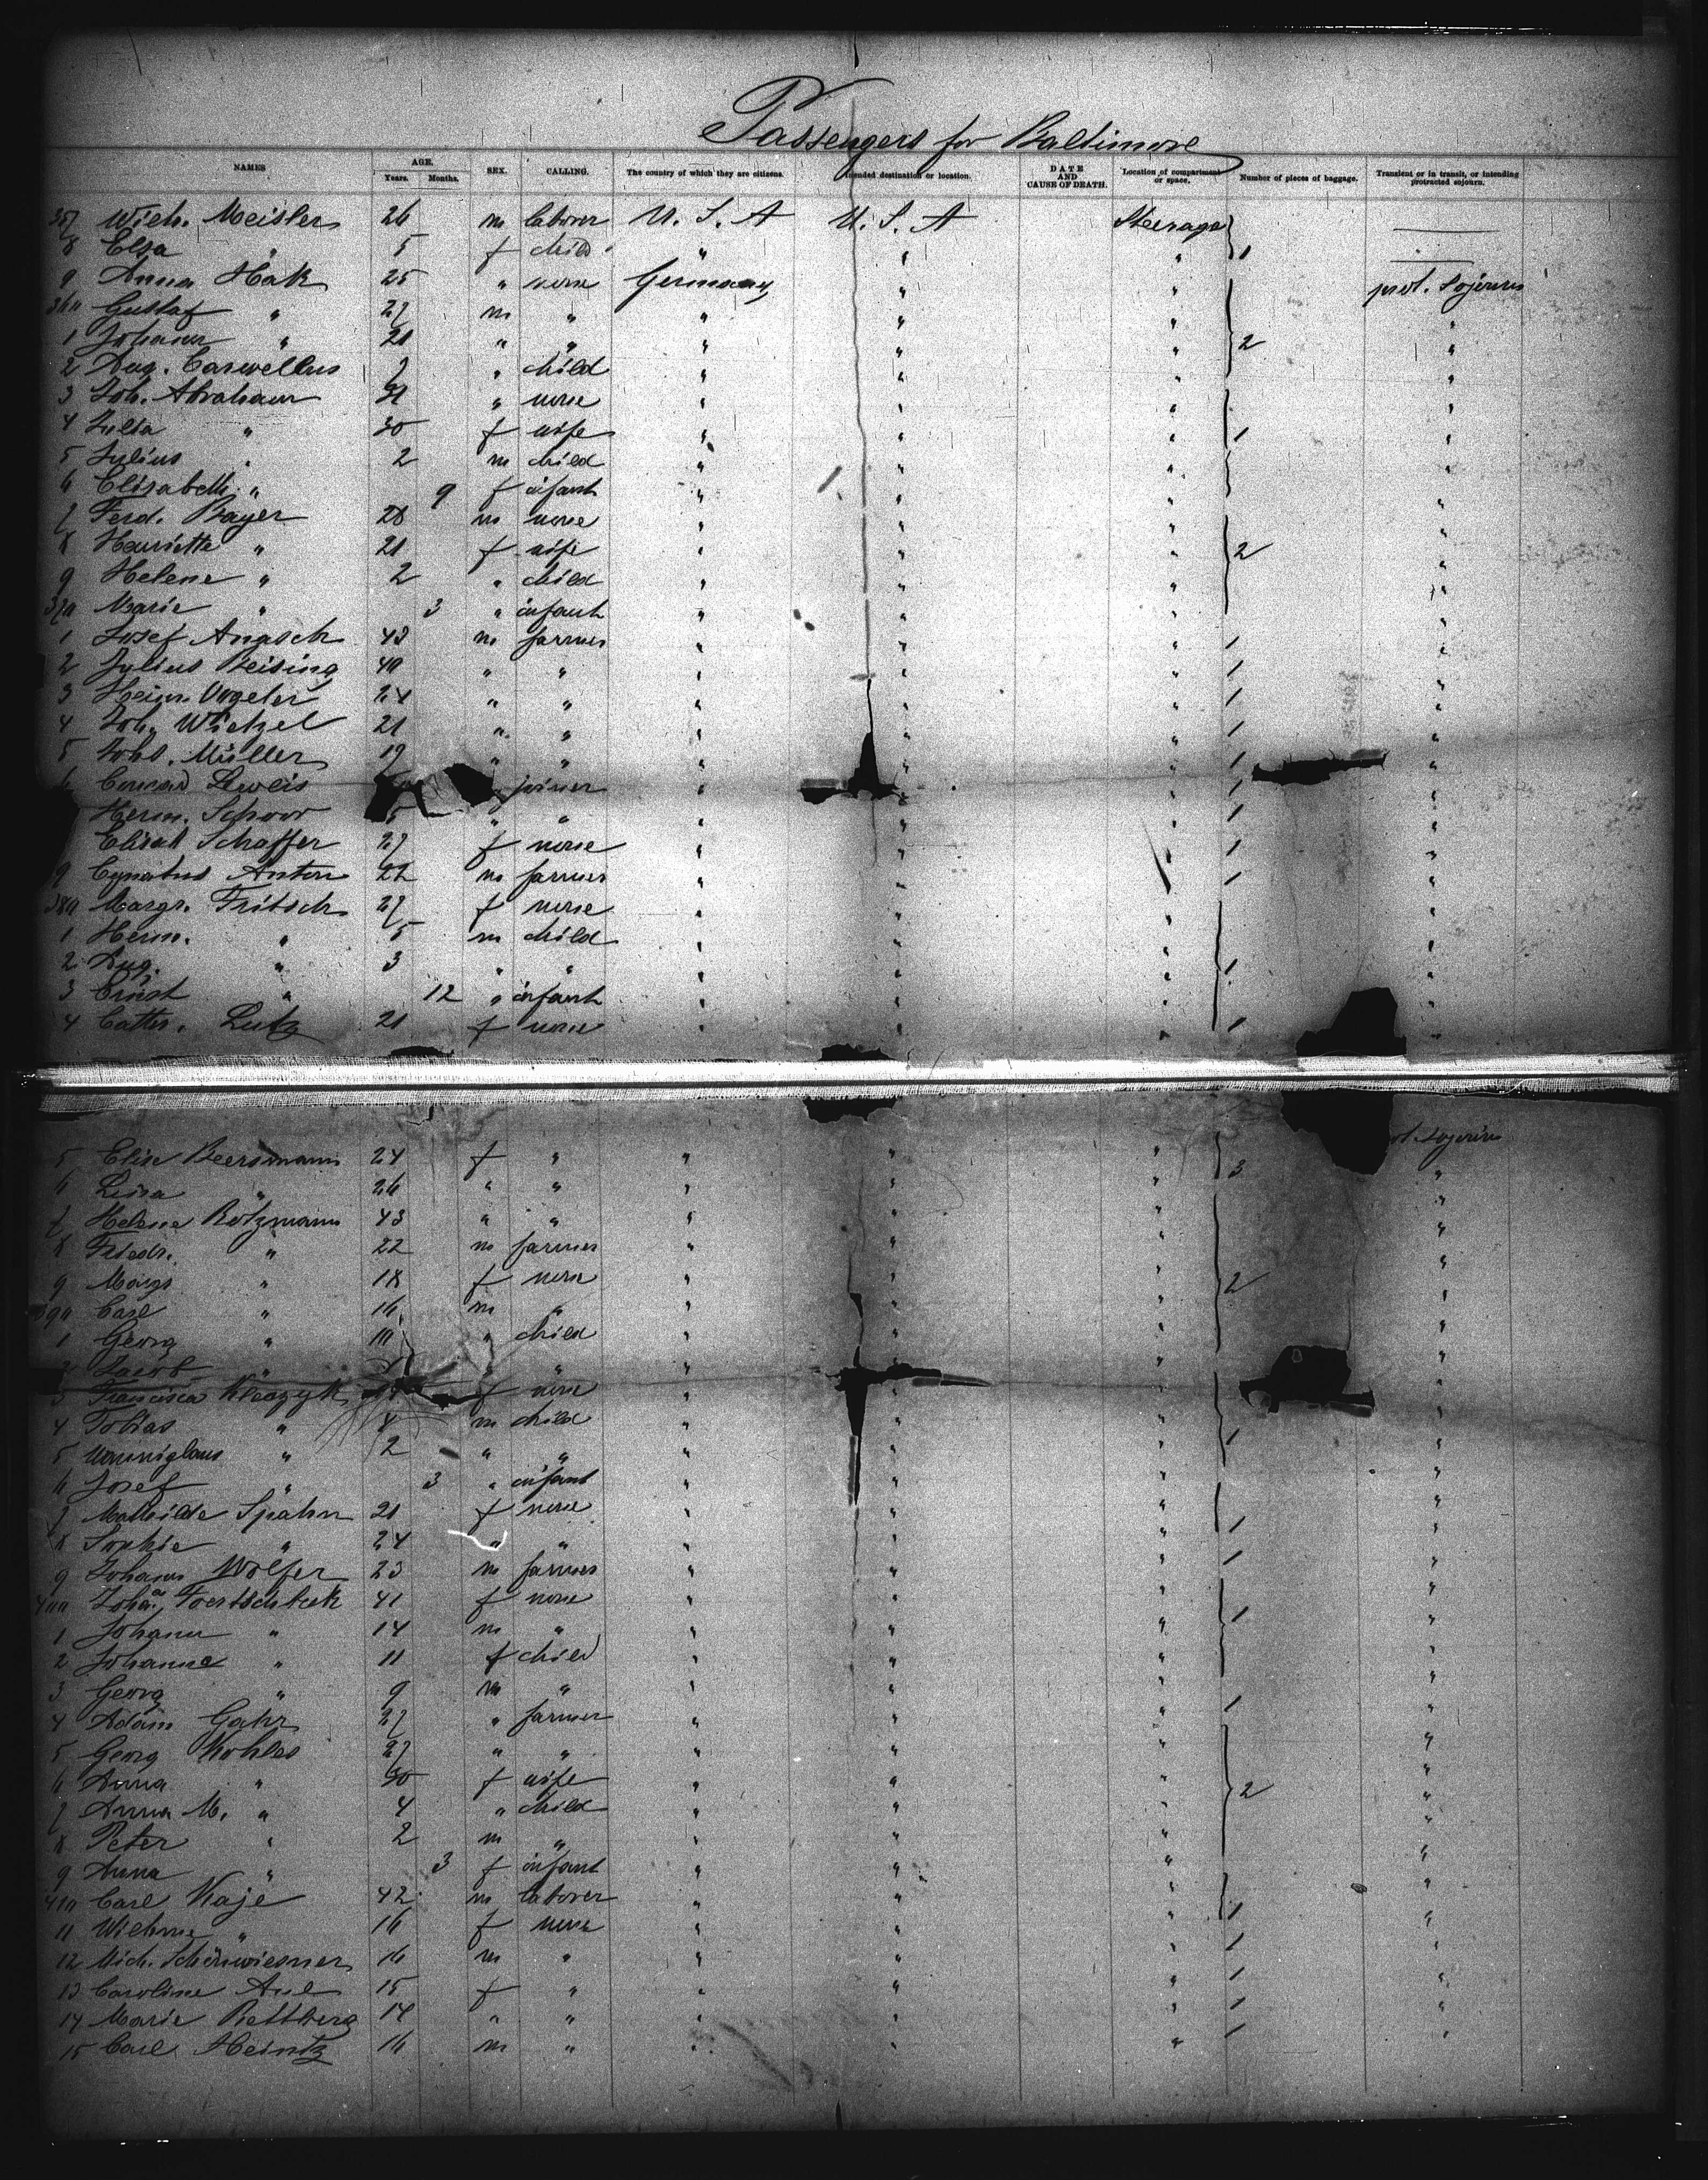 Passengers for Baltimore
NAMES AGE. Years. Months. SEX. CALLING. The country of which they are citizens. Intended destination or location. DATE AND CAUSE OF DEATH. Location of compartment or space. Number of pieces of baggage. Transient or in transit, or intending protracted sojourn.
357 Wilh. Meisler 26 m laborer U. S. A U. S. A Steerage
8 Elsa " 5 f child " " " 1
9 Anna Hak 25 " none Germany " " prot. sojourn
360 Gustaf " 27 m " " " " "
1 Johann " 21 " " " " " 2 "
2 Aug. Carwellus 7 " child " " " "
3 Joh. Abraham 31 " none " " " "
4 Julia " 30 f wife " " " 1 "
5 Julius " 2 m child " " " "
6 Elisabeth " 9 f infant " " " "
7 Ferd. Bayer 28 m none " " " "
8 Henriette " 21 f wife " " " 2 "
9 Helene " 2 " child " " " "
370 Marie " 3 " infant " " " "
1 Josef Anasch 43 m farmer " " " 1 "
2 Julius Beising 40 " " " " " 1 "
3 Heinr. Vogeler 24 " " " " " 1 "
4 Joh. Wietzel 21 " " " " " 1 "
5 Johs. Müller 19 " " " " " 1 "
6 Conrad Leweis joiner " " " 1 "
Herm. Schorr 5 " " " " " 1 "
Elisab Schaffer 27 f none " " " 1 "
9 Cynatus Anton 22 m farmer " " " 1 "
380 Margr. Fritsch 27 f none " " " "
1 Herm. " 5 m child " " " "
2 Aug. " 3 " " " " " 1 "
3 Ernst " 12 " infant " " " "
4 Cather. Lutz 21 f none " " " 1 "
5 Elise Beersmann 24 f " " " " 3 sojourn
6 Lina " 26 " " " " " "
7 Helene Rotzmann 43 " " " " " "
8 Friedr. " 22 m farmer " " " "
9 Margr " 18 f none " " " 2 "
390 Carl " 16 m " " " " "
1 Georg " 10 " child " " " "
2 Jacob " " " " " " "
3 Francisca Kleczyk f none " " " "
4 Tobias " 4 m child " " " 1 "
5 " 2 " " " " " "
6 Josef " 3 " infant " " " "
7 Mathilde Spahn 21 f none " " " 1 "
8 Sophie " 24 " " " " " "
9 Johann Wolfer 23 m farmer " " " 1 "
400 Joha. Foertschbeck 41 f none " " " 1 "
1 Johann " 14 m " " " " "
2 Johanna " 11 f child " " " "
3 Georg " 9 m " " " " "
4 Adam Gahr 27 " farmer " " " 1 "
5 Georg Kohles 27 " " " " " "
6 Anna " 30 f wife " " " 2 "
7 Anna M. " 4 " child " " " "
8 Peter " 2 m " " " " "
9 Anna " 3 f infant " " " "
410 Carl Kaje 42 m laborer " " " "
11 Wilhme " 16 f none " " " 1 "
12 Mich. Schönwiesner 16 m " " " " 1 "
13 Caroline Aul 15 f " " " " 1 "
14 Marie Rettberg 14 " " " " " 1 "
15 Carl Heintz 16 m " " " " 1 "